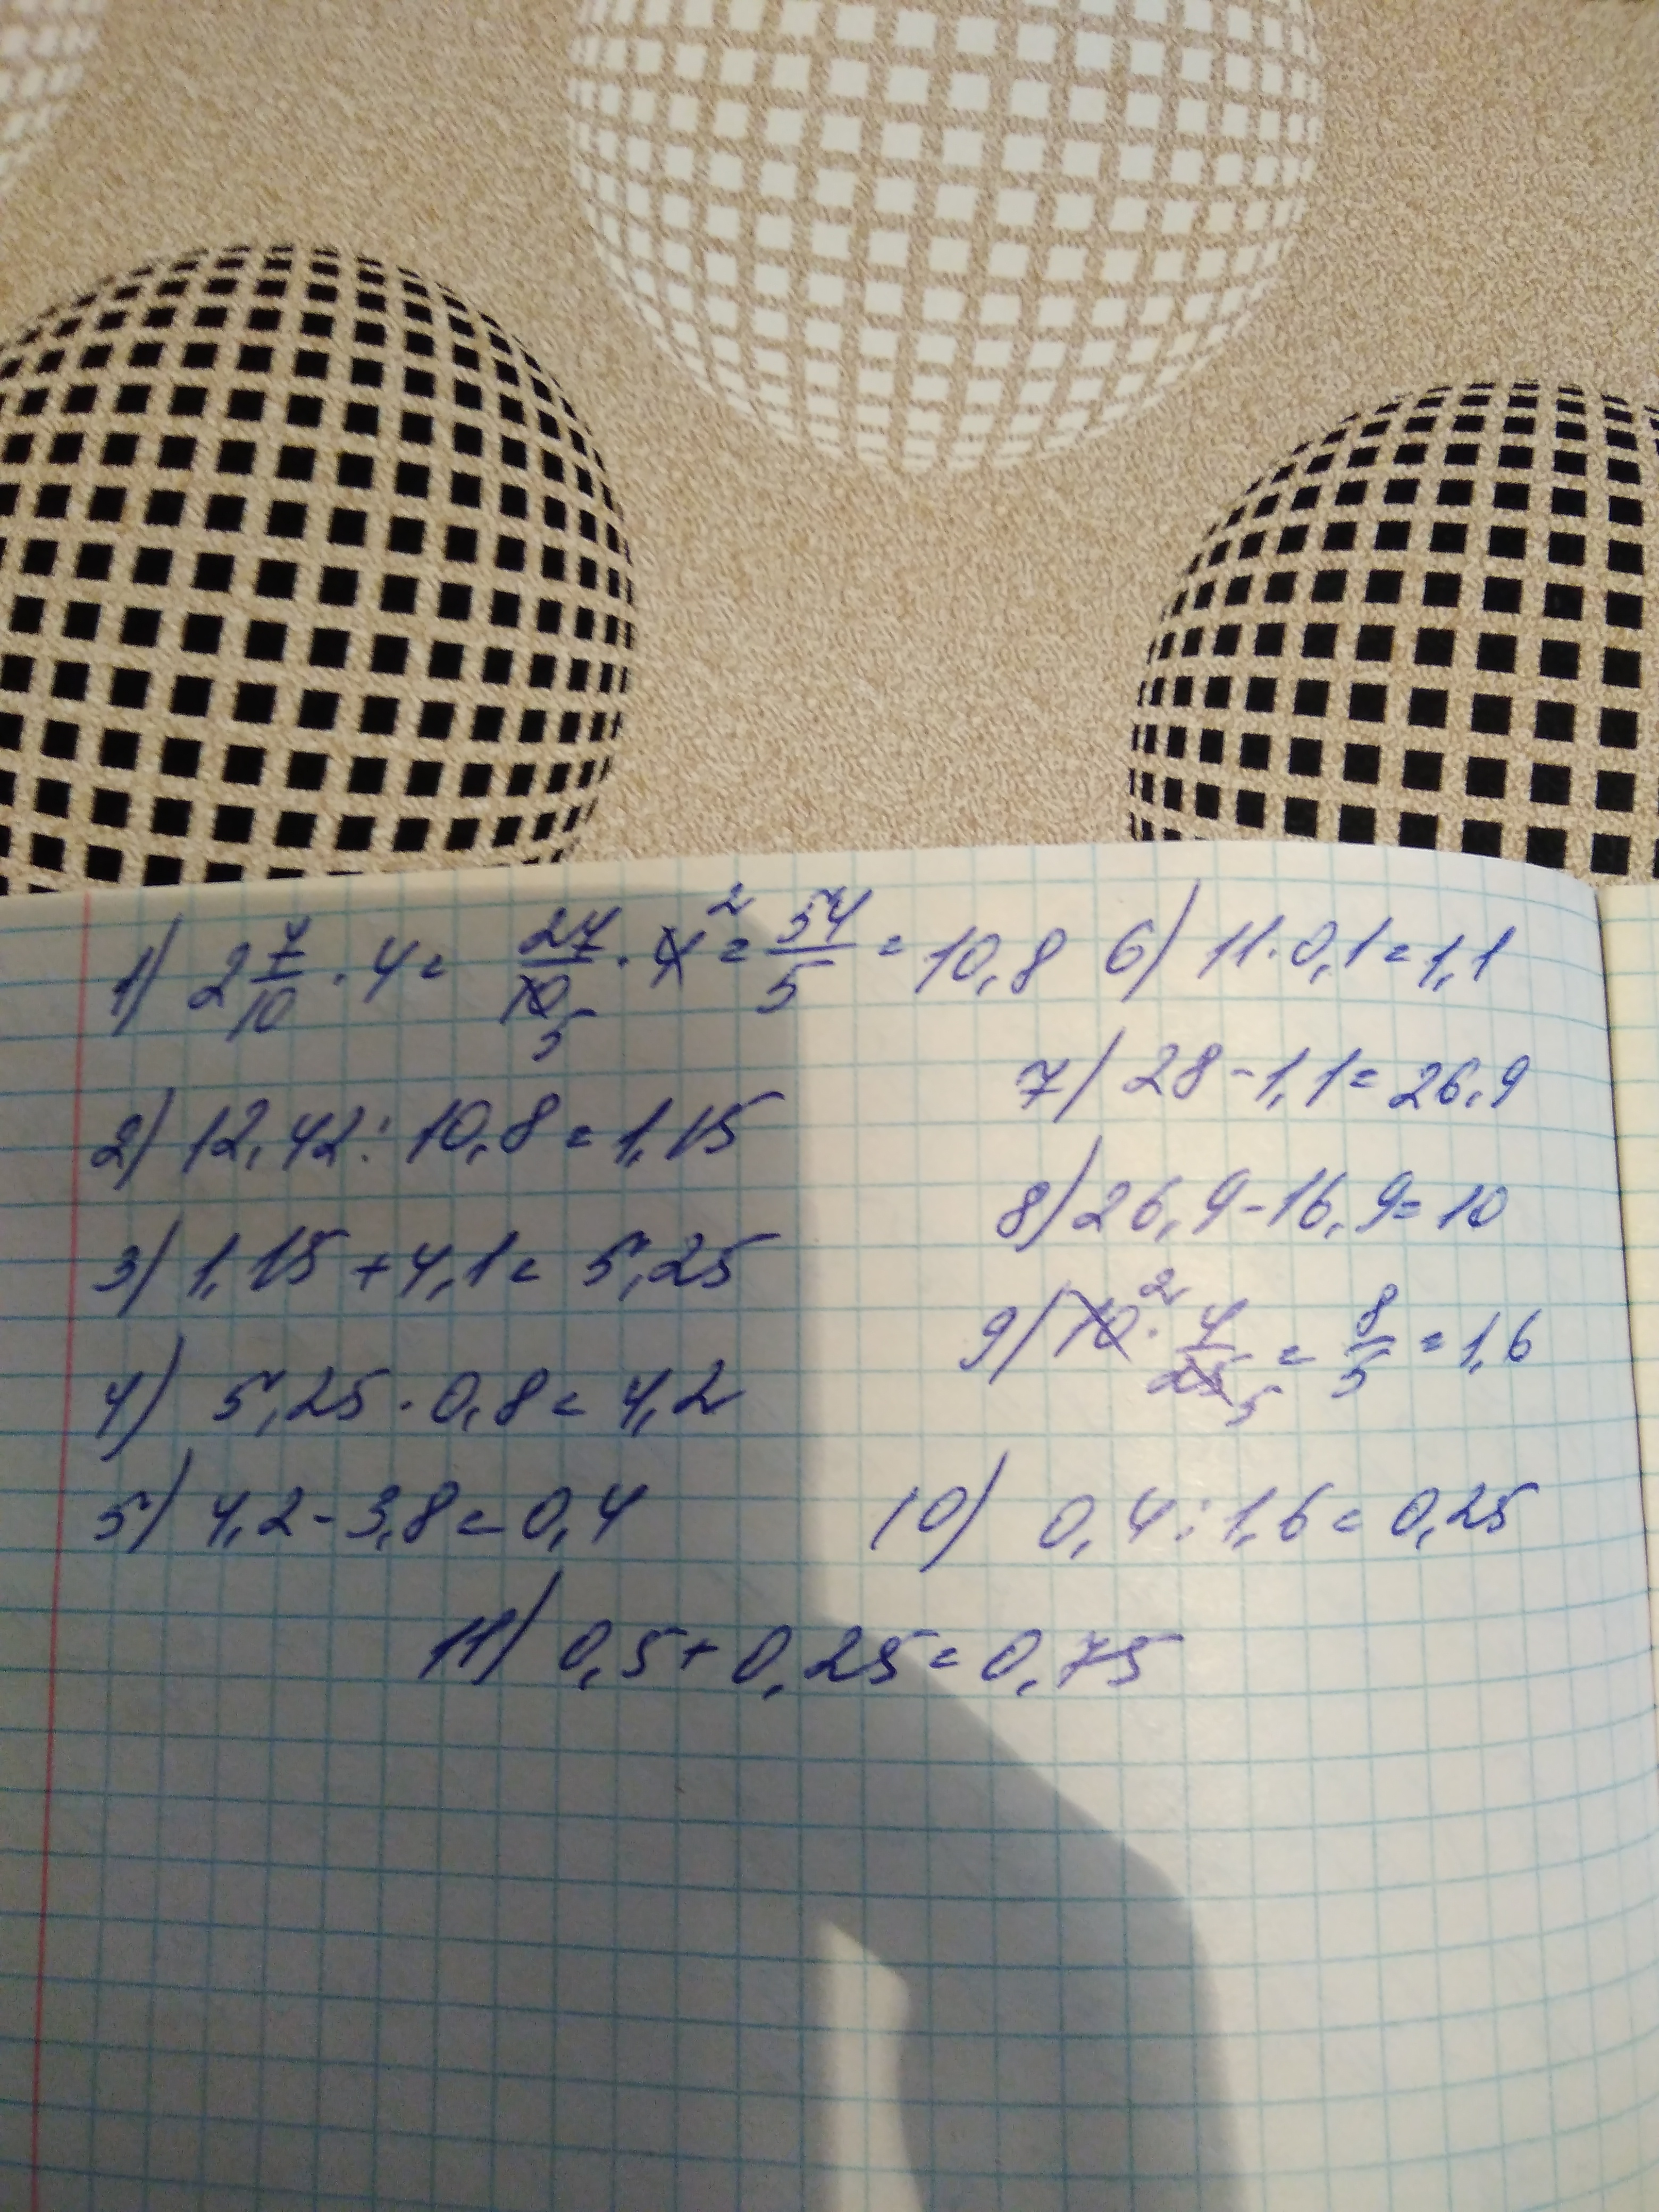 1) 2 7/10 · 4 = 27/10 5 · 4 2 = 54/5 = 10,8
2) 12,42 : 10,8 = 1,15
3) 1,15 + 4,1 = 5,25
4) 5,25 · 0,8 = 4,2
5) 4,2 - 3,8 = 0,4
6) 11 · 0,1 = 1,1
7) 28 - 1,1 = 26,9
8) 26,9 - 16,9 = 10
9) 10 2 · 4/25 5 = 8/5 = 1,6
10) 0,4 : 1,6 = 0,25
11) 0,5 + 0,25 = 0,75